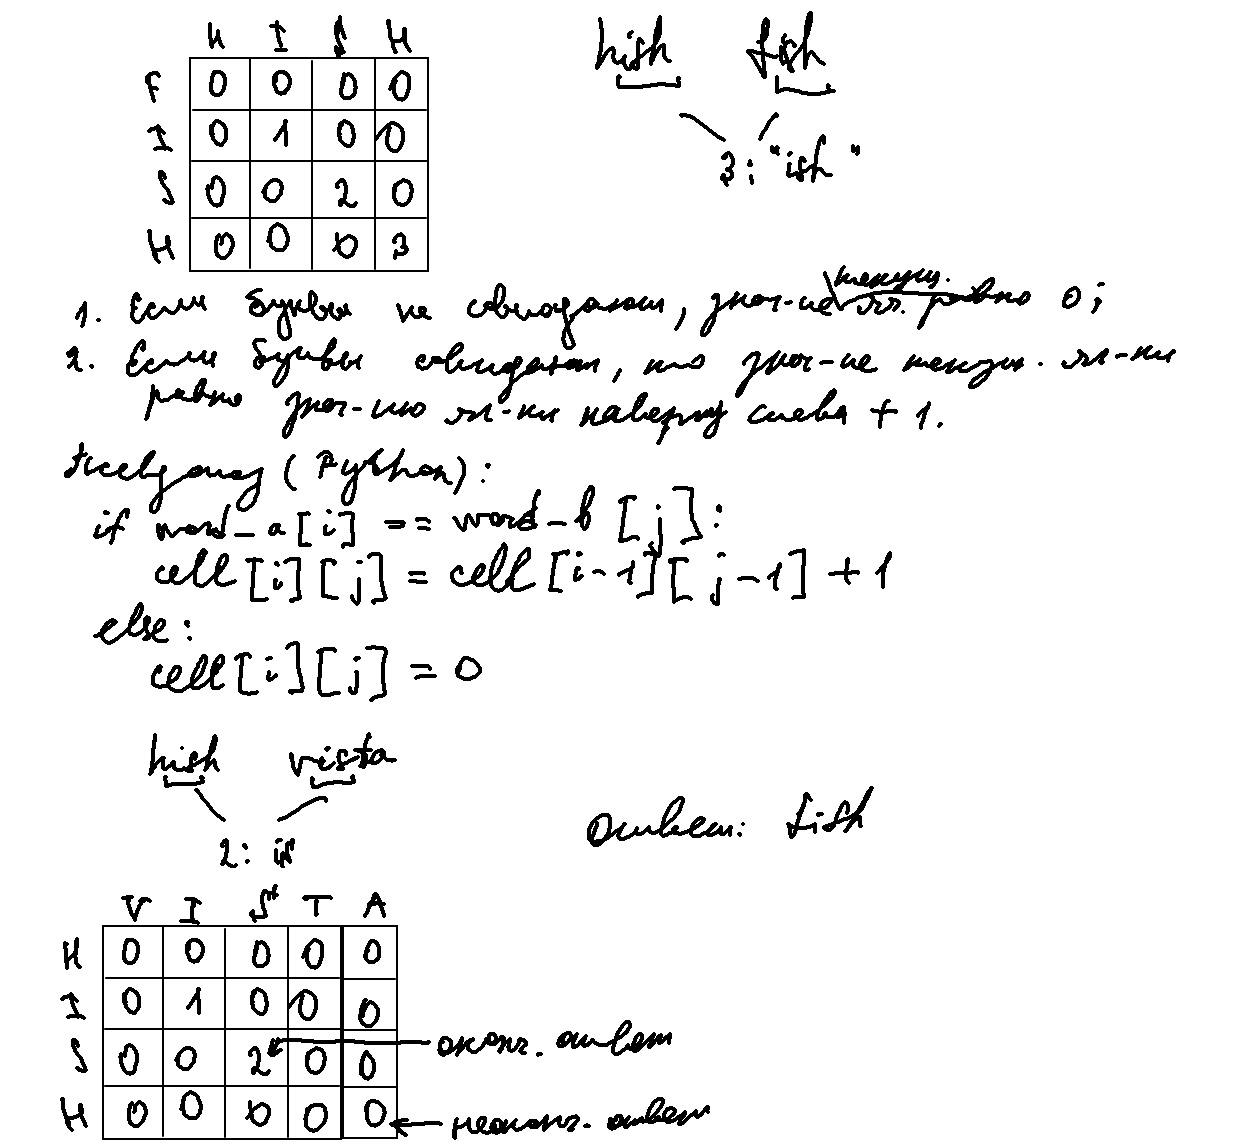 H I S H
F 0 0 0 0
I 0 1 0 0
S 0 0 2 0
H 0 0 0 3
hish fish
3: "ish"
1. Если буквы не совпадают, знач-ие текущ. яч. равно 0;
2. Если буквы совпадают, то знач-ие текущ. яч-ки
равно знач-ию яч-ки наверху слева + 1.
Псевдокод (Python):
if word_a[i] == word_b[j]:
cell[i][j] = cell[i-1][j-1] + 1
else:
cell[i][j] = 0
hish vista
2: is
Ответ: fish
V I S T A
H 0 0 0 0 0
I 0 1 0 0 0
S 0 0 2 0 0 оконч. ответ
H 0 0 0 0 0 неоконч. ответ